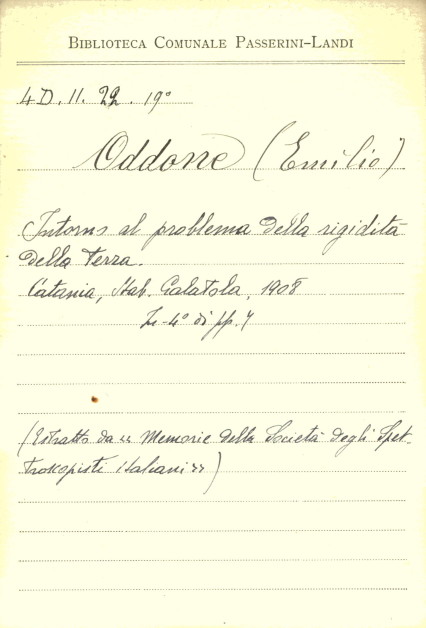 BIBLIOTECA COMUNALE PASSERINI-LANDI
4 D. II. 22. 19°
Oddone (Emilio)
Intorno al problema della rigidità
della terra.
Catania, Stab. Galatola, 1908
In-4° di pp. 7
(Estratto da « Memorie della Società degli Spet-
troscopisti italiani »)